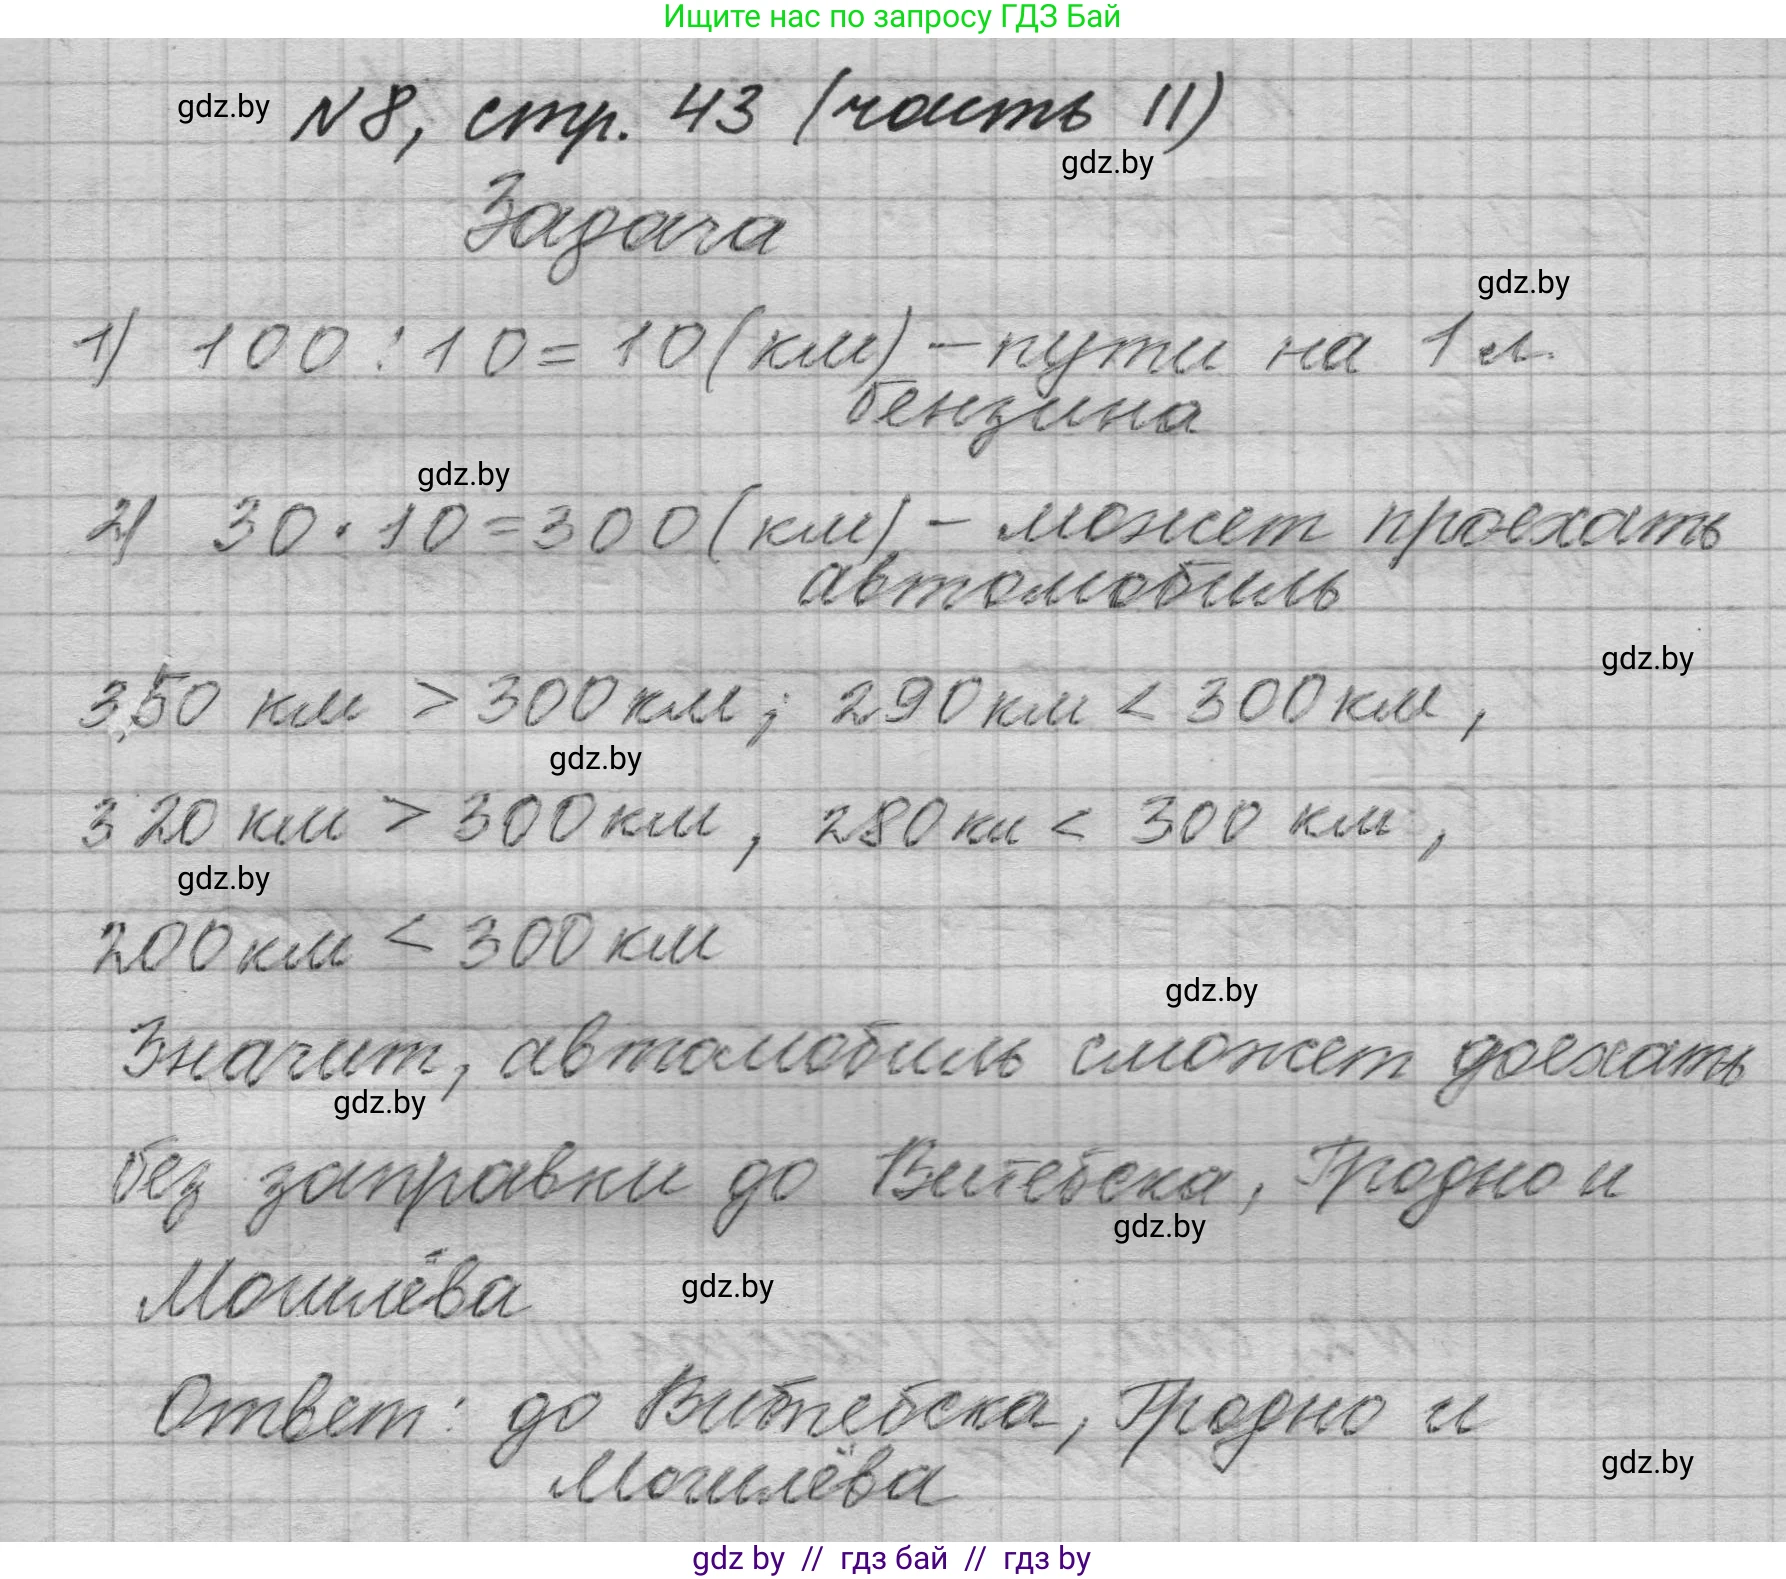 Ищите нас по запросу ГДЗ Бай
gdz.by №8, стр. 43 (часть II)
gdz.by
Задача
gdz.by
1) 100 : 10 = 10 (км) - пути на 1 л.
бензина
gdz.by
2) 30 · 10 = 300 (км) - может проехать
автомобиль
gdz.by
350 км > 300 км; 290 км < 300 км,
gdz.by
320 км > 300 км, 280 км < 300 км,
gdz.by
200 км < 300 км
gdz.by
Значит, автомобиль сможет доехать
gdz.by
без заправки до Витебска, Гродно и
gdz.by
Могилёва
gdz.by
Ответ: до Витебска, Гродно и
gdz.by
Могилёва
gdz by // гдз бай // гдз by